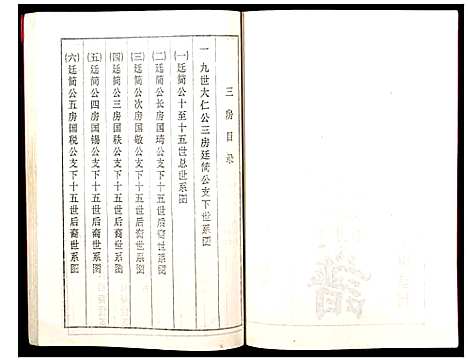 三房目录
一 九世大仁公三房廷简公支下世系图
(一)廷简公十至十五世总世系图
(二)廷简公长房国琦公支下十五世后裔世系图
(三)廷简公次房国敬公支下十五世后裔世系图
(四)廷简公三房国秩公支下十五世后裔世系图
(五)廷简公四房国锡公支下十五世后裔世系图
(六)廷简公五房国税公支下十五世后裔世系图